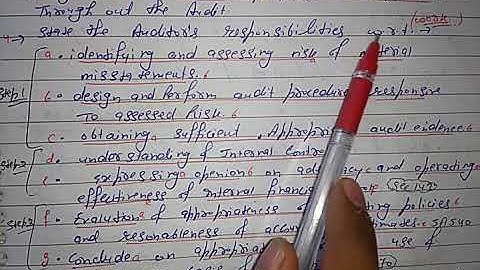 Through out the Audit
4→ state the Auditor's responsibilities w.r.t. →
a. identifying and assessing risk of material
misstatements.
Step 1
b. design and Perform audit procedures responsive
to assessed Risk.
c. obtaining sufficient Appropriate audit evidence.
Step 2
d. understanding of Internal Contro
e. expressing openion on adequacy and operating
effectiveness of internal financial (Sec 143
Step 3
f. Evaluation of appropriateness of policies.
and resonableness of accou estimates. SA 540
g. Conclude on appropria use of